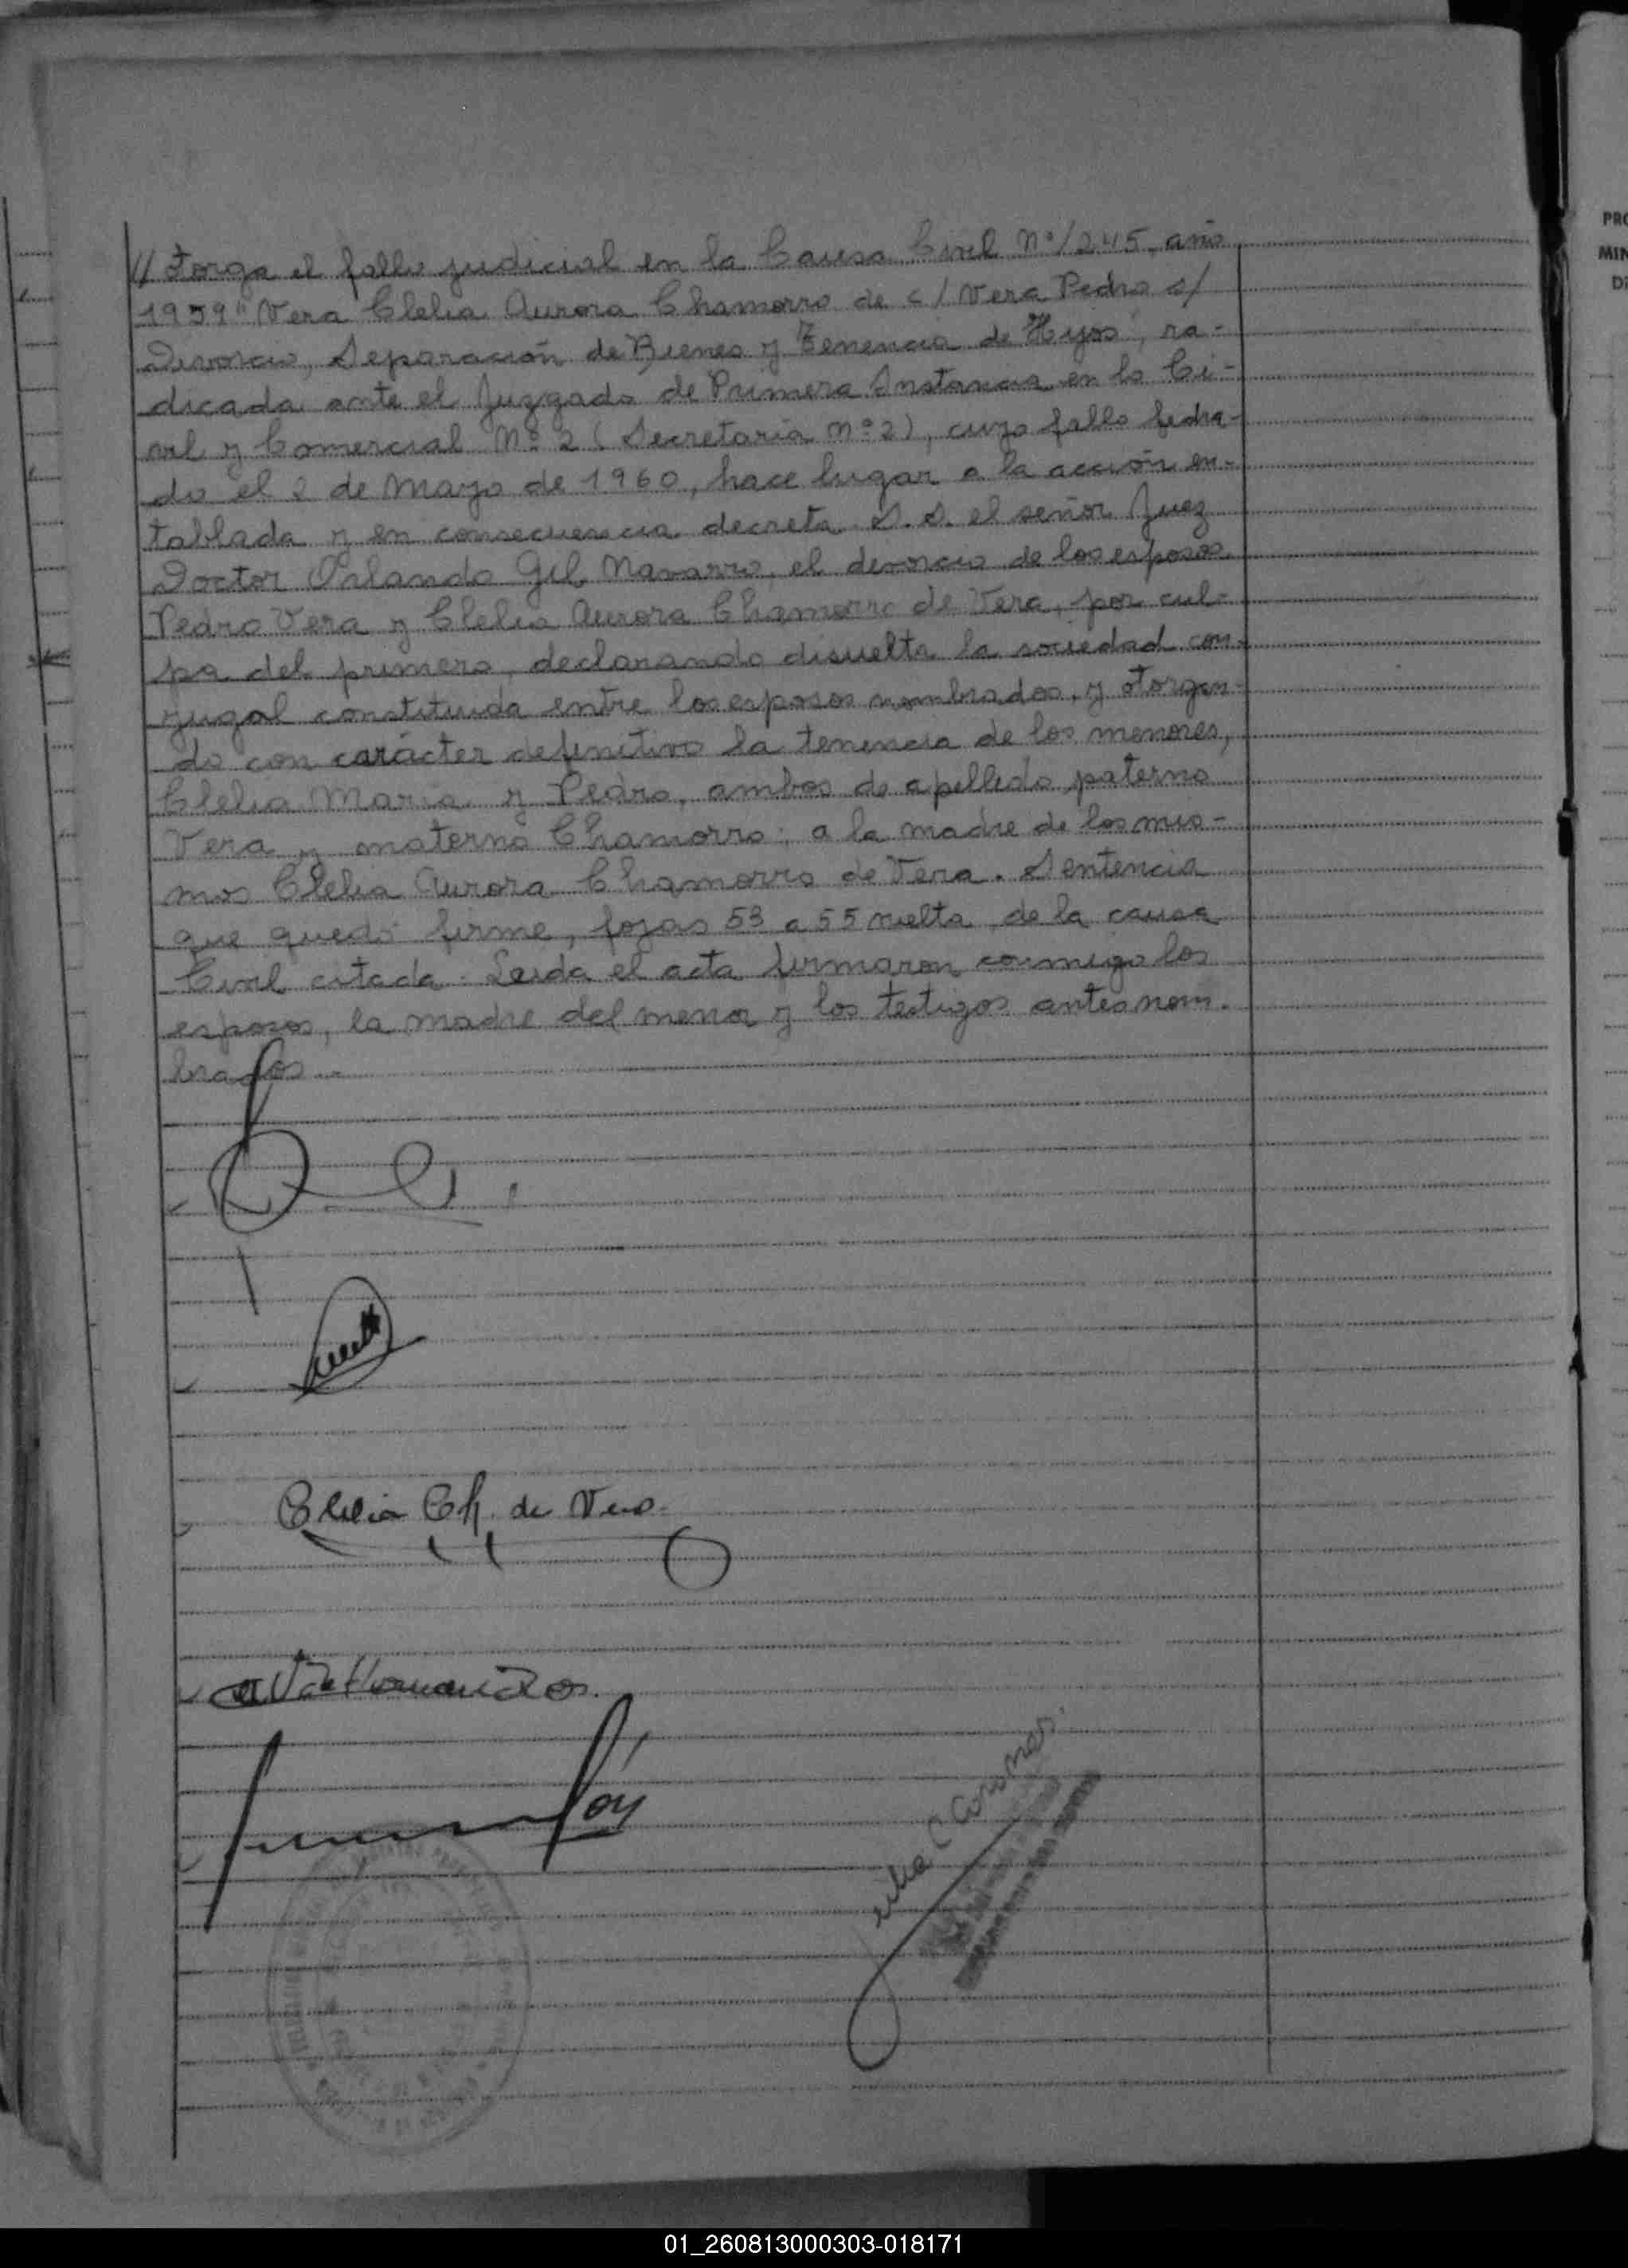 // otorga el fallo judicial en la Causa Civil Nº 1245, año
1959 "Vera Clelia Aurora Chamorro de c/ Vera Pedro s/
Divorcio, Separación de Bienes y Tenencia de Hijos", ra-
dicada ante el Juzgado de Primera Instancia en lo Ci-
vil y Comercial Nº 2 (Secretaría nº 2), cuyo fallo fecha-
do el 2 de Mayo de 1960, hace lugar a la acción en-
tablada y en consecuencia decreta S.S. el señor Juez
Doctor Orlando Gil Navarro, el divorcio de los esposos
Pedro Vera y Clelia Aurora Chamorro de Vera, por cul-
pa del primero, declarando disuelta la sociedad con-
yugal constituida entre los esposos nombrados, y otorgan-
do con carácter definitivo la tenencia de los menores,
Clelia María y Pedro, ambos de apellido paterno
Vera y materno Chamorro; a la madre de los mis-
mos Clelia Aurora Chamorro de Vera. Sentencia
que quedó firme, fojas 53 a 55 vuelta, de la causa
Civil citada. Leída el acta firmaron conmigo los
esposos, la madre del menor y los testigos antes nom-
brados.-
Clelia Ch. de Vera
PRO
MIN
01_260813000303-018171